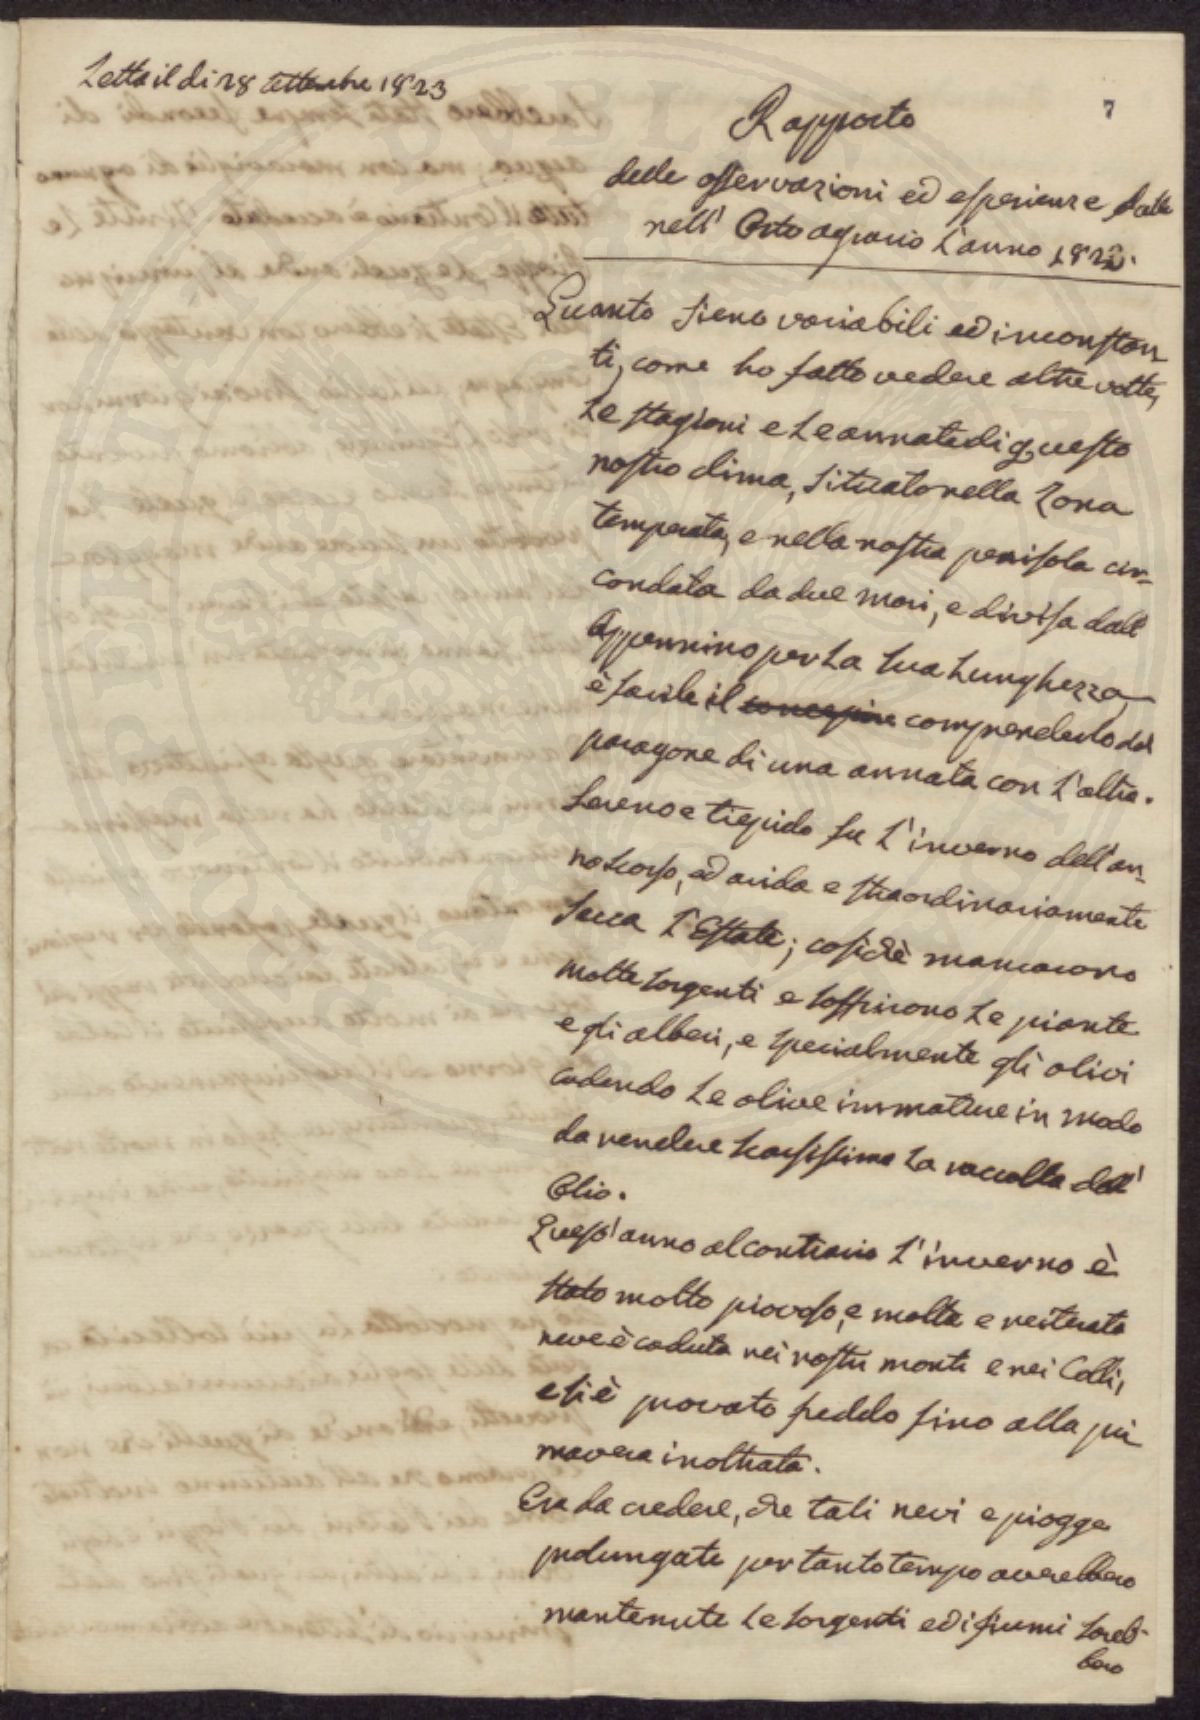 Letta il di 28 settembre 1823
7
Rapporto
delle osservazioni ed esperienze fatte
nell' Orto agrario l'anno 1822.
Quanto sieno variabili ed inconstan-
ti, come ho fatto vedere altre volte,
le stagioni e le annate di questo
nostro clima, situato nella Zona
temperata, e nella nostra penisola cir-
condata da due mari, e divisa dall'
Appennino per la sua lunghezza
è facile il comprenderlo dal
paragone di una annata con l'altra.
Sereno e tiepido fu l'inverno dell'an-
no scorso, ed arida e straordinariamente
secca l'Estate; cosichè mancarono
molte sorgenti e soffrirono le piante
e gli alberi, e specialmente gli olivi
cadendo le olive immature in modo
da rendere scarsissima la raccolta dell'
Olio.
Quest'anno al contrario l'inverno è
stato molto piovoso, e molta e reiterata
neve è caduta nei nostri monti e nei Colli,
e si è provato freddo fino alla pri
mavera inoltrata.
Era da credere, che tali nevi e piogge
prolungate per tanto tempo averebbero
mantenute le sorgenti ed i fiumi sareb-
bero